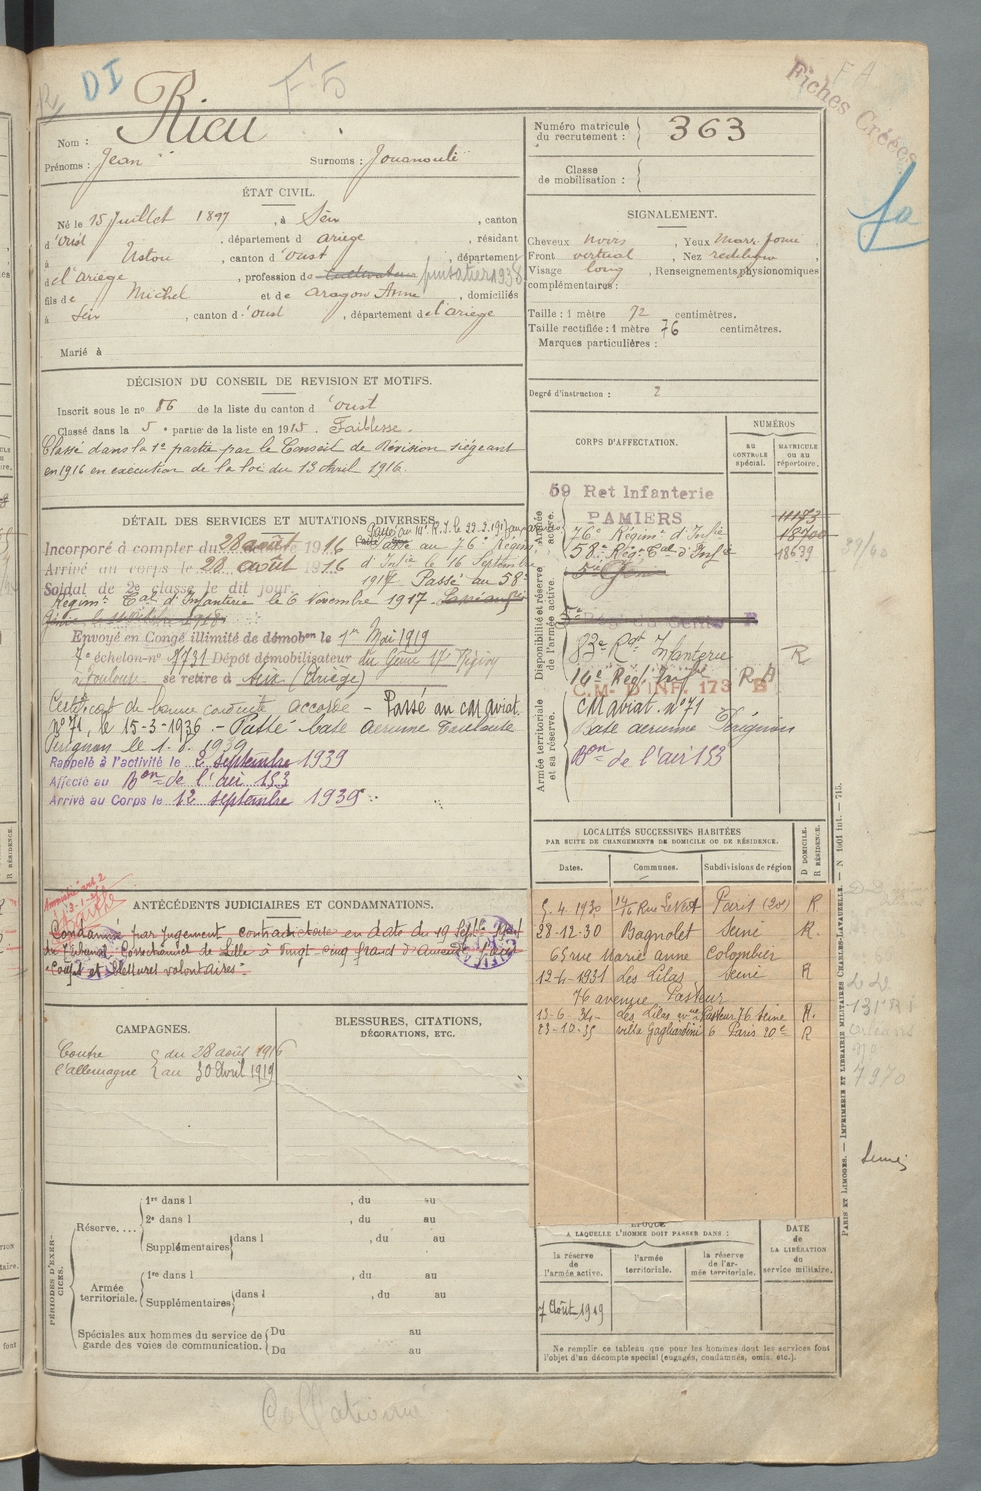 DI
F 5
F A
Fiches Créées
Nom : Rieu
Prénoms : Jean Surnoms :
Numéro matricule du recrutement : 363
Classe de mobilisation :
ÉTAT CIVIL.
Né le 15 Juillet 1897, à Seix, canton
d'oust, département d ariege, résidant
à Ustou, canton d'oust, département
d el'ariege, profession de cultivateur 1938
fils de Michel et de aragon Anne, domiciliés
à Seix, canton d'oust, département de l'ariege
Marié à
SIGNALEMENT.
Cheveux noirs, Yeux
Front vertical, Nez rectiligne
Visage long, Renseignements physionomiques
complémentaires :
Taille : 1 mètre 72 centimètres.
Taille rectifiée : 1 mètre 76 centimètres.
Marques particulières :
Degré d'instruction : 2
DÉCISION DU CONSEIL DE REVISION ET MOTIFS.
Inscrit sous le no 86 de la liste du canton d'oust
Classé dans la 5e partie de la liste en 1915. Faiblesse.
Classé dans la 1e partie par le Conseil de Révision siégeant
en 1916 en exécution de la loi du 13 Avril 1916.
CORPS D'AFFECTATION.
NUMÉROS
AU CONTROLE spécial.
MATRICULE ou au répertoire.
Armée active.
59 Ret Infanterie
PAMIERS
11173
76e Régimt d'Infie 18700
58e Régt Cal d'Infie 18639
5e Génie
Disponibilité et réserve de l'armée active.
83e Rgt Infanterie R
14e Régt Inf
C.M. D'INF. 173
Armée territoriale et sa réserve.
CM aviat. no 71
Base aerienne Pérignon
Bon de l'air 153
DÉTAIL DES SERVICES ET MUTATIONS DIVERSES.
Incorporé à compter du 28 août 1916
Arrivé au corps le 28 août 1916
Soldat de 2e classe le dit jour.
Passé au 76e Régimt
d'Infie le 16 Septembre
1917 Passé au 58e
Régimt Cal d'Infanterie le 6 Novembre 1917
Envoyé en Congé illimité de démobon le 1er Mai 1919
7e échelon no 1731 Dépôt démobilisateur du Génie 17e Région
à Toulouse se retire à Aux (Ariège)
Certificat de bonne conduite accordé - Passé au CM aviat.
no 71, le 15-3-1936 - Passé base aerienne Toulouse
Rappelé à l'activité le 2 septembre 1939
Affecté au Bon de l'air 153
Arrivé au Corps le 12 septembre 1939
LOCALITÉS SUCCESSIVES HABITÉES
PAR SUITE DE CHANGEMENTS DE DOMICILE OU DE RÉSIDENCE.
Dates. Communes. Subdivisions de région
D DOMICILE. R RÉSIDENCE.
5.4.1930 Paris (20e) R.
28-12-30 Bagnolet Seine R.
65 rue Marie anne Colombier
12-4-1931 Les Lilas Seine R
76 avenue Pasteur
13-6-34- Les Lilas Pasteur 76 Seine R.
23-10-35 villa Gagliardini 6 Paris 20e R
ANTÉCÉDENTS JUDICIAIRES ET CONDAMNATIONS.
Condamné par jugement contradictoire en date du 19 Septbre
du Tribunal Correctionnel de Lille à vingt cinq francs d'amende pour
coups et blessures volontaires.
CAMPAGNES.
Contre l'allemagne
du 28 août 1916
au 30 Avril 1919
BLESSURES, CITATIONS,
DÉCORATIONS, ETC.
PÉRIODES D'EXERCICES.
Réserve....
1re dans l , du au
2e dans l , du au
Supplémentaires dans l , du au
Armée territoriale.
1re dans l , du au
Supplémentaires dans l , du au
Spéciales aux hommes du service de garde des voies de communication.
Du au
Du au
ÉPOQUE
A LAQUELLE L'HOMME DOIT PASSER DANS :
la réserve de l'armée active.
l'armée territoriale.
la réserve de l'armée territoriale.
DATE de LA LIBÉRATION du service militaire.
7 Août 1919
Ne remplir ce tableau que pour les hommes dont les services font
l'objet d'un décompte spécial (engagés, condamnés, omis, etc.).
PARIS ET LIMOGES. — IMPRIMERIE ET LIBRAIRIE MILITAIRES CHARLES-LAVAUZELLE. — N 1601 int. — 715.
39/40
131e RI
Orléans
7970